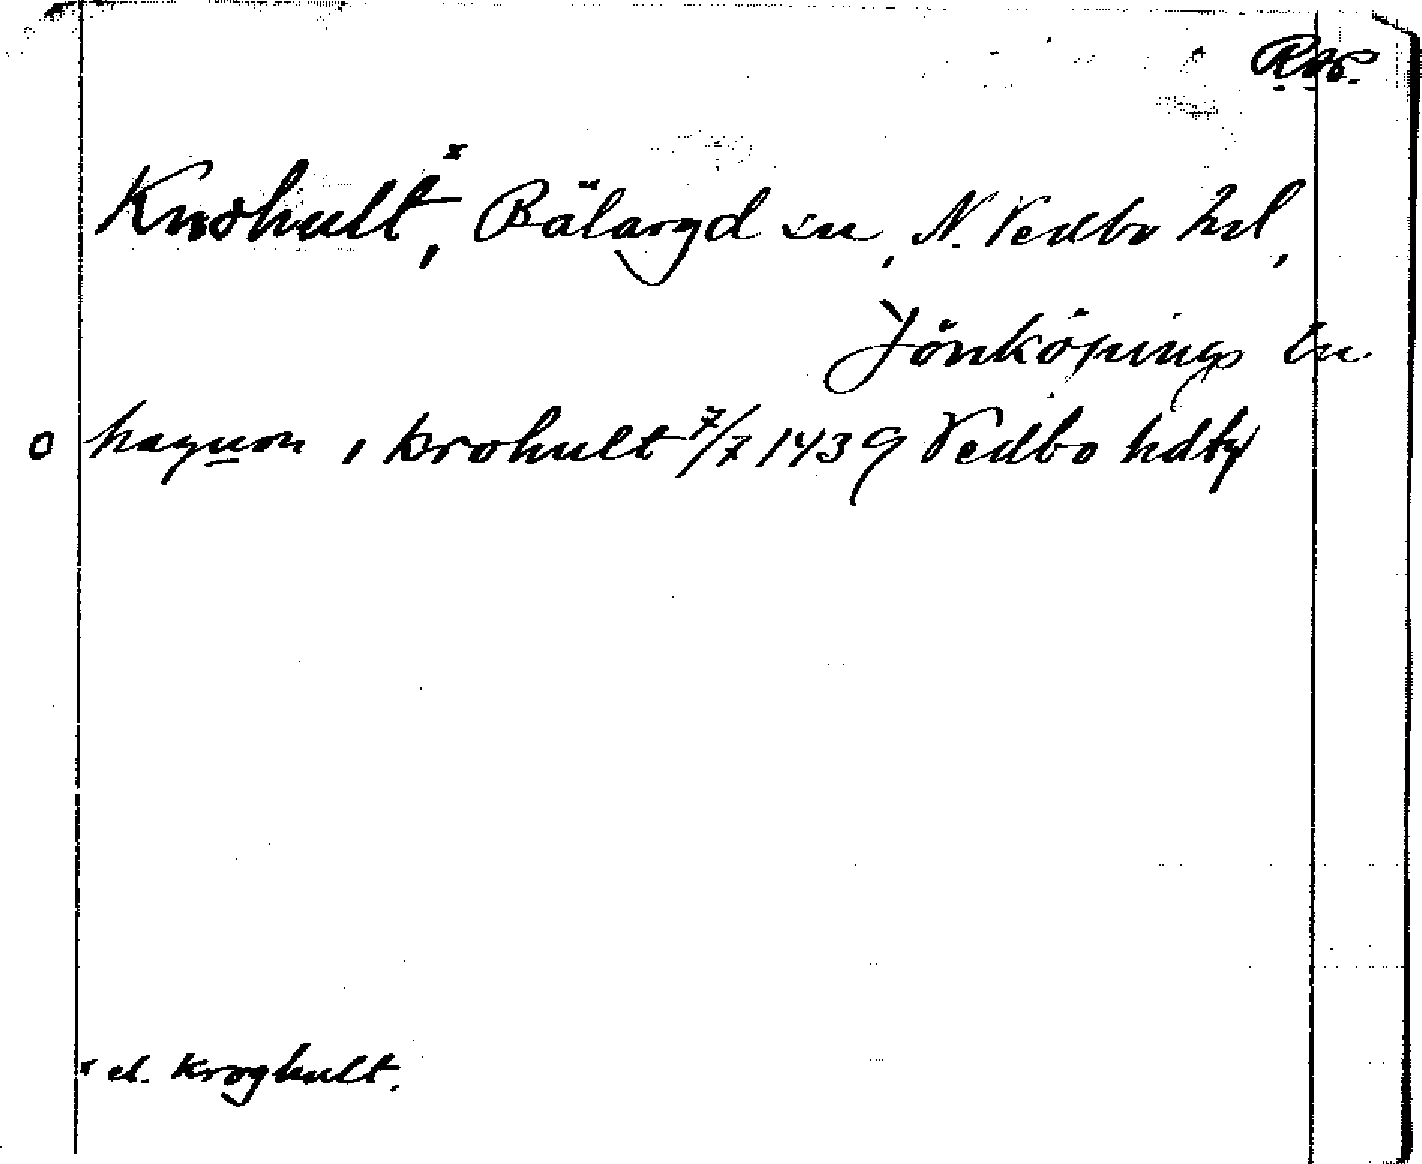 Knohult,ˣ Bälaryd sn, N. Vedbo hd,
Jönköpings ln
o haquon i krohult 7/7 1439 Vedbo hdtg
x el. Kroghult.